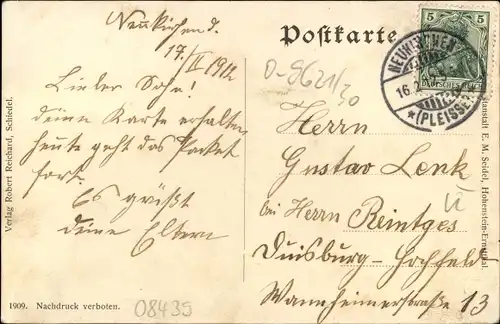 Neukirchen d.
17/II 1912
Lieber Sohn!
deine Karte erhalten
heute geht das Packet
fort.
Es grüßt
deine Eltern
Postkarte
5 5
DEUTSCHES REICH
16.2.
*(PLEISSE)
O-9621/30
Herrn
Gustav Lenk
bei Herrn Reintges
Duisburg-Hochfeld
Wannheimerstraße 13
Verlag Robert Reichard, Schiedel.
anstalt E. M. Seidel, Hohenstein-Ernstthal.
1909. Nachdruck verboten.
08435